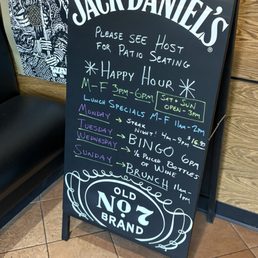 JACK DANIEL'S
PLEASE SEE HOST
FOR PATIO SEATING
HAPPY HOUR
M-F 3PM-6PM
SAT & SUN
OPEN-3PM
LUNCH SPECIALS M-F 11am-2pm
MONDAY → STEAK
NIGHT! 4pm-9pm
TUESDAY → BINGO 6PM
WEDNESDAY → 1/2 PRICED BOTTLES
OF WINE
SUNDAY → BRUNCH 11am-
1pm
OLD
No. 7
BRAND